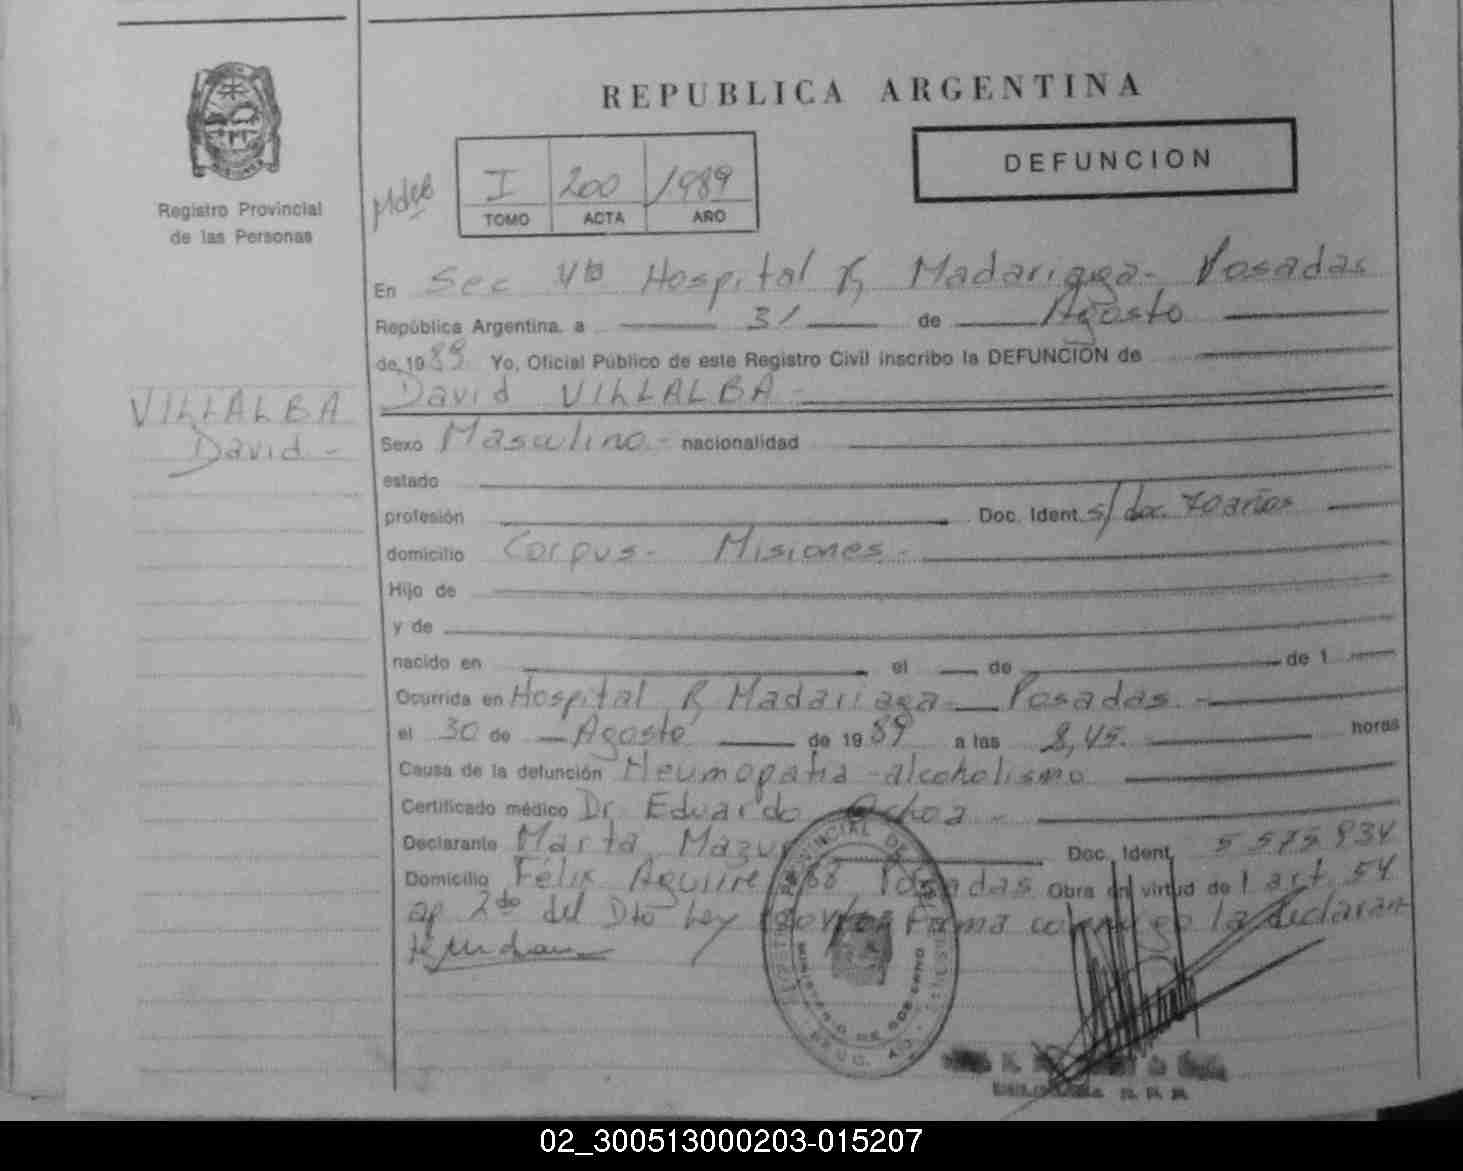 REPUBLICA ARGENTINA
DEFUNCION
Registro Provincial
de las Personas
I 200 1989
TOMO ACTA AÑO
En Sec 4ta Hospital R Madariaga - Posadas
República Argentina, a 31 de Agosto
de 1989. Yo, Oficial Público de este Registro Civil inscribo la DEFUNCION de
David VILLALBA -
VILLALBA
David -
Sexo Masculino - nacionalidad
estado
profesión Doc. Ident. s/doc. 70 años
domicilio Corpus - Misiones -
Hijo de
y de
nacido en el de de 1
Ocurrida en Hospital R Madariaga - Posadas -
el 30 de Agosto de 1989 a las 8,45. horas
Causa de la defunción Neumopatia - alcoholismo
Certificado médico Dr. Eduardo Ochoa -
Declarante Marta Mazur Doc. Ident. 5 575 934
Domicilio Félix Aguirre Posadas Obra en virtud del art. 54
ap 2do del Dto Ley firma conmigo la declaran-
te
02_300513000203-015207